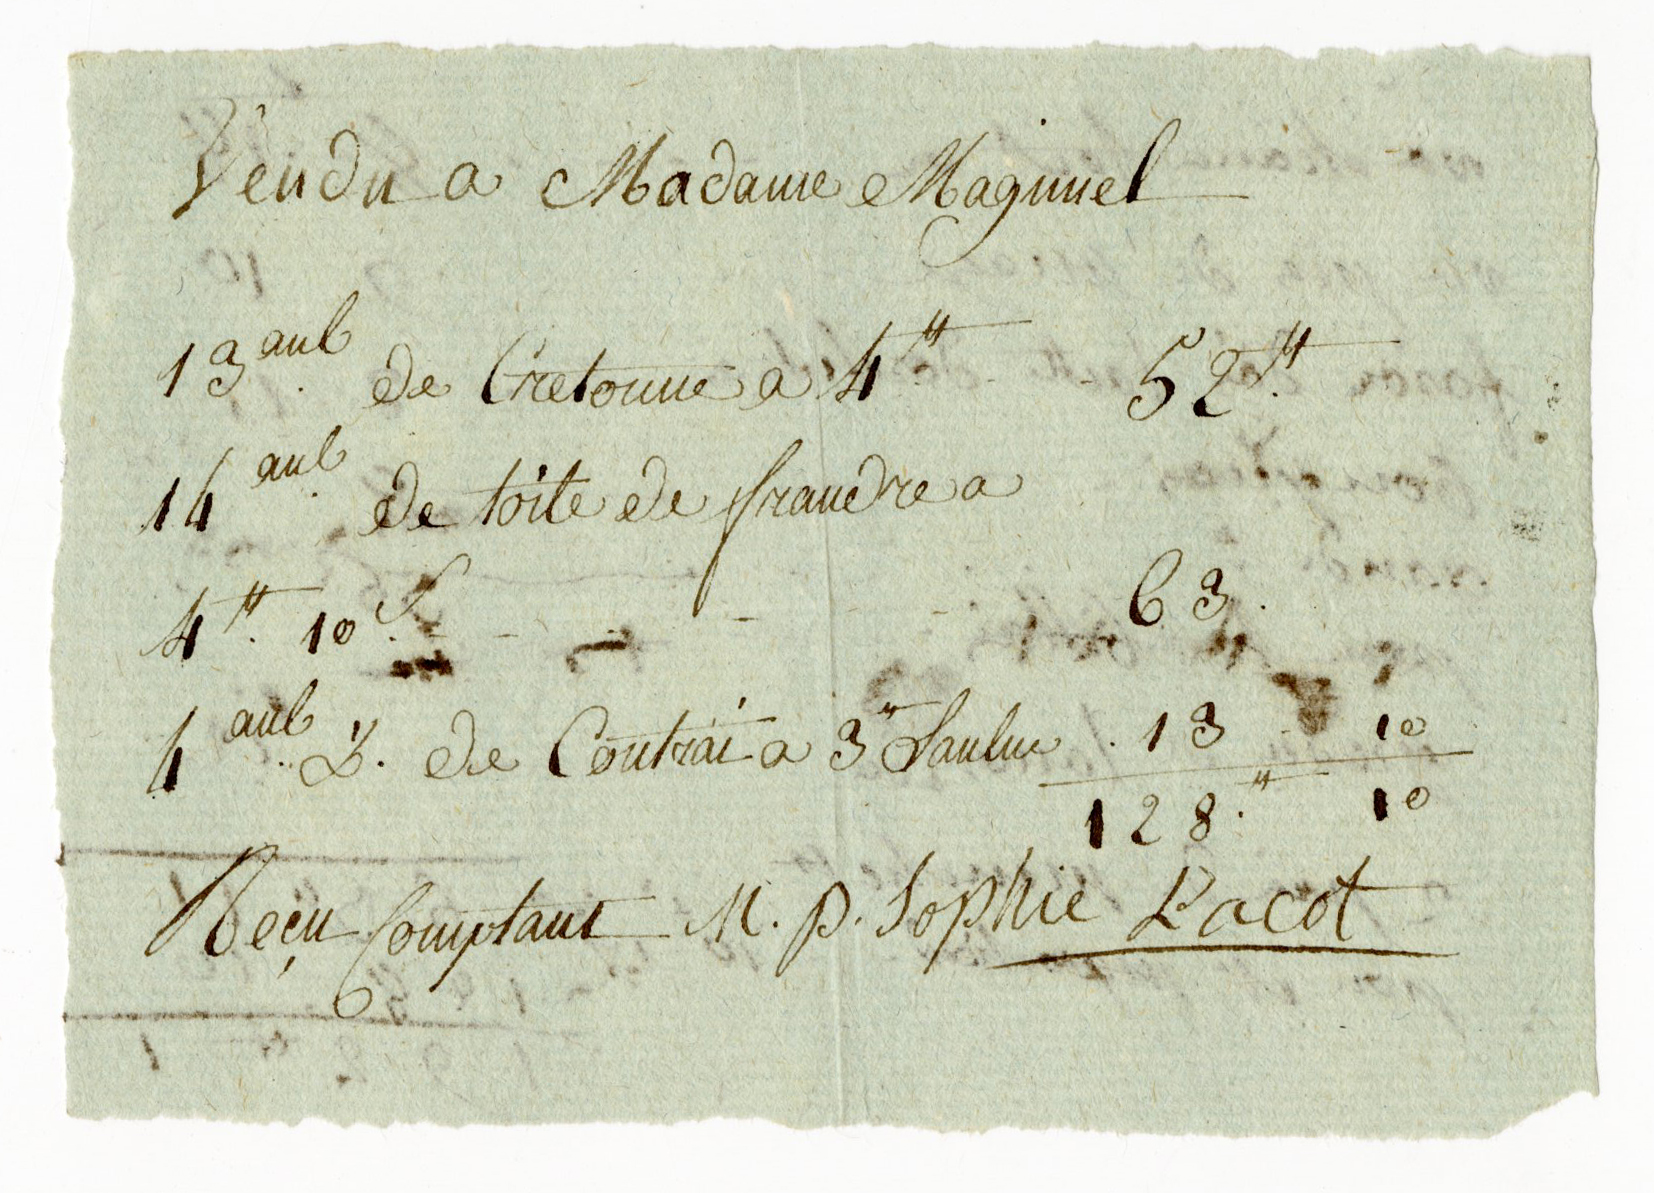 Vendu a Madame Magimel
13 aul de Cretonne a 4tt 52tt
14 aul de toile de frandre a
4tt 10s 63
4 aul ½ de Coutrai a 3tt 13 10
128tt 10
Reçu Comptant M. p. Sophie Lacot